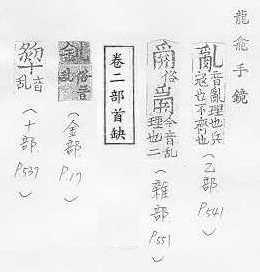 龍龕手鏡
亂音亂理也兵
寇也不齊也
(乙部 P.541)
俗 今音亂
理也二
(雜部 P.551)
卷二部首缺
俗音
乱
(金部 P.17)
音
乱
(十部 P.537)